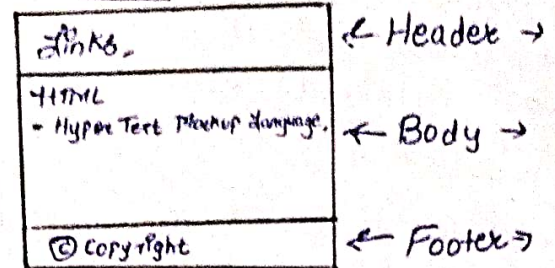 Links.
← Header →
HTML
- Hyper Text Markup Language.
← Body →
© Copyright
← Footer →